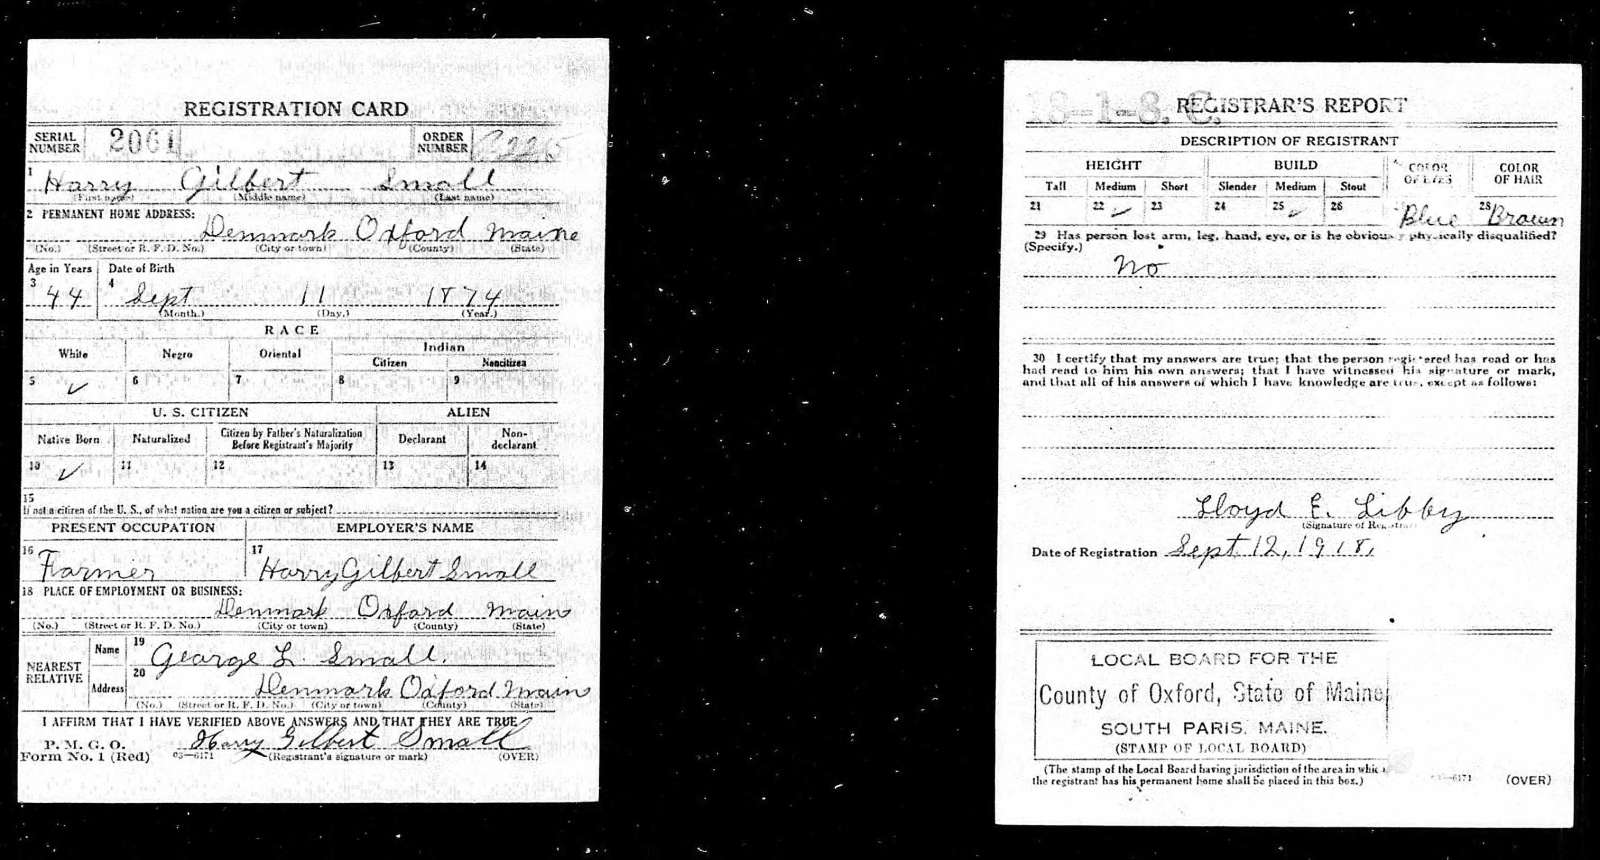 REGISTRATION CARD
SERIAL NUMBER 2061 ORDER NUMBER
1 Harry Gilbert Small
(First name) (Middle name) (Last name)
2 PERMANENT HOME ADDRESS:
Denmark Oxford Maine
(No.) (Street or R. F. D. No.) (City or town) (County) (State)
Age in Years Date of Birth
3 44 4 Sept 11 1874
(Month.) (Day.) (Year.)
RACE
White Negro Oriental Indian
Citizen Noncitizen
5 ✓ 6 7 8 9
U. S. CITIZEN ALIEN
Native Born Naturalized Citizen by Father's Naturalization Before Registrant's Majority Declarant Non-declarant
10 ✓ 11 12 13 14
15
If not a citizen of the U. S., of what nation are you a citizen or subject?
PRESENT OCCUPATION EMPLOYER'S NAME
16 Farmer 17 Harry Gilbert Small
18 PLACE OF EMPLOYMENT OR BUSINESS:
Denmark Oxford Main
(No.) (Street or R. F. D. No.) (City or town) (County) (State)
NEAREST RELATIVE Name 19 George L. Small.
Address 20 Denmark Oxford Main
(No.) (Street or R. F. D. No.) (City or town) (County) (State)
I AFFIRM THAT I HAVE VERIFIED ABOVE ANSWERS AND THAT THEY ARE TRUE
P. M. G. O.
Form No. 1 (Red) 03—6171 Harry Gilbert Small
(Registrant's signature or mark) (OVER)
18-1-8. C. REGISTRAR'S REPORT
DESCRIPTION OF REGISTRANT
HEIGHT BUILD COLOR OF EYES COLOR OF HAIR
Tall Medium Short Slender Medium Stout
21 22 ✓ 23 24 25 ✓ 26 Blue 28 Brown
29 Has person lost arm, leg, hand, eye, or is he obviously physically disqualified?
(Specify.)
No
30 I certify that my answers are true; that the person registered has read or has
had read to him his own answers; that I have witnessed his signature or mark,
and that all of his answers of which I have knowledge are true, except as follows:
Lloyd E. Libby
(Signature of Registrar)
Date of Registration Sept. 12, 1918.
LOCAL BOARD FOR THE
County of Oxford, State of Maine
SOUTH PARIS, MAINE.
(STAMP OF LOCAL BOARD)
(The stamp of the Local Board having jurisdiction of the area in which
the registrant has his permanent home shall be placed in this box.)
03—6171 (OVER)